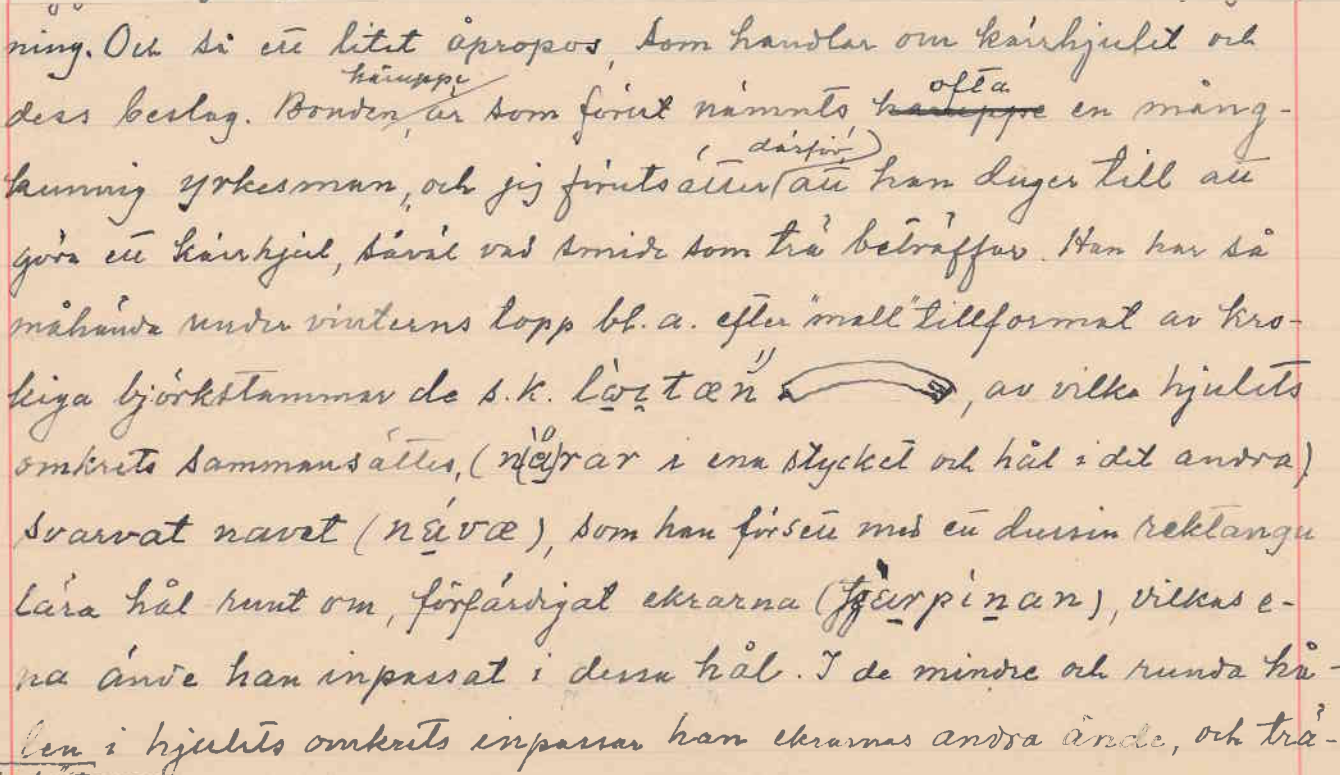 ning. Och så ett litet åpropos, som handlar om kärrhjulet och
häruppe ofta
dess beslag. Bonden, är som förut nämnts häruppe en mång-
därför
kunnig yrkesman, och jag förutsätter att han duger till att
göra ett kärrhjul, såväl vad smide som trä beträffar. Han har så
måhända under vinterns lopp bl. a. efter "mall" tillformat av kro-
kiga björkstammar de s.k. , av vilka hjulets
omkrets sammansättes, ( i ena stycket och hål i det andra)
svarvat navet (nävæ), som han försett med ett dussin rektangu
lära hål runt om, förfärdigat ekrarna ( ), vilkas e-
na ände han inpassat i dessa hål. I de mindre och runda hå-
len i hjulets omkrets inpassar han ekrarnas andra ände, och trä-